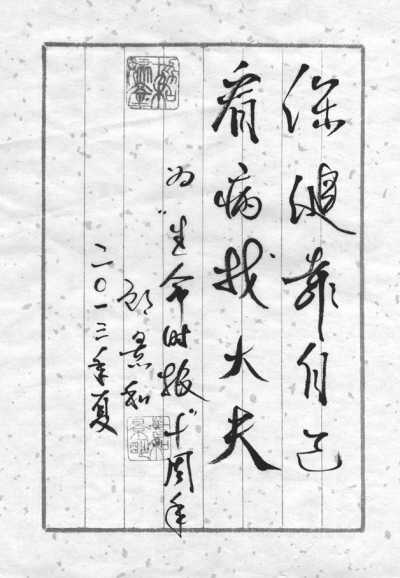 保健靠自己
看病找大夫
为“生命时报”十周年
郎景和
二〇一三年夏